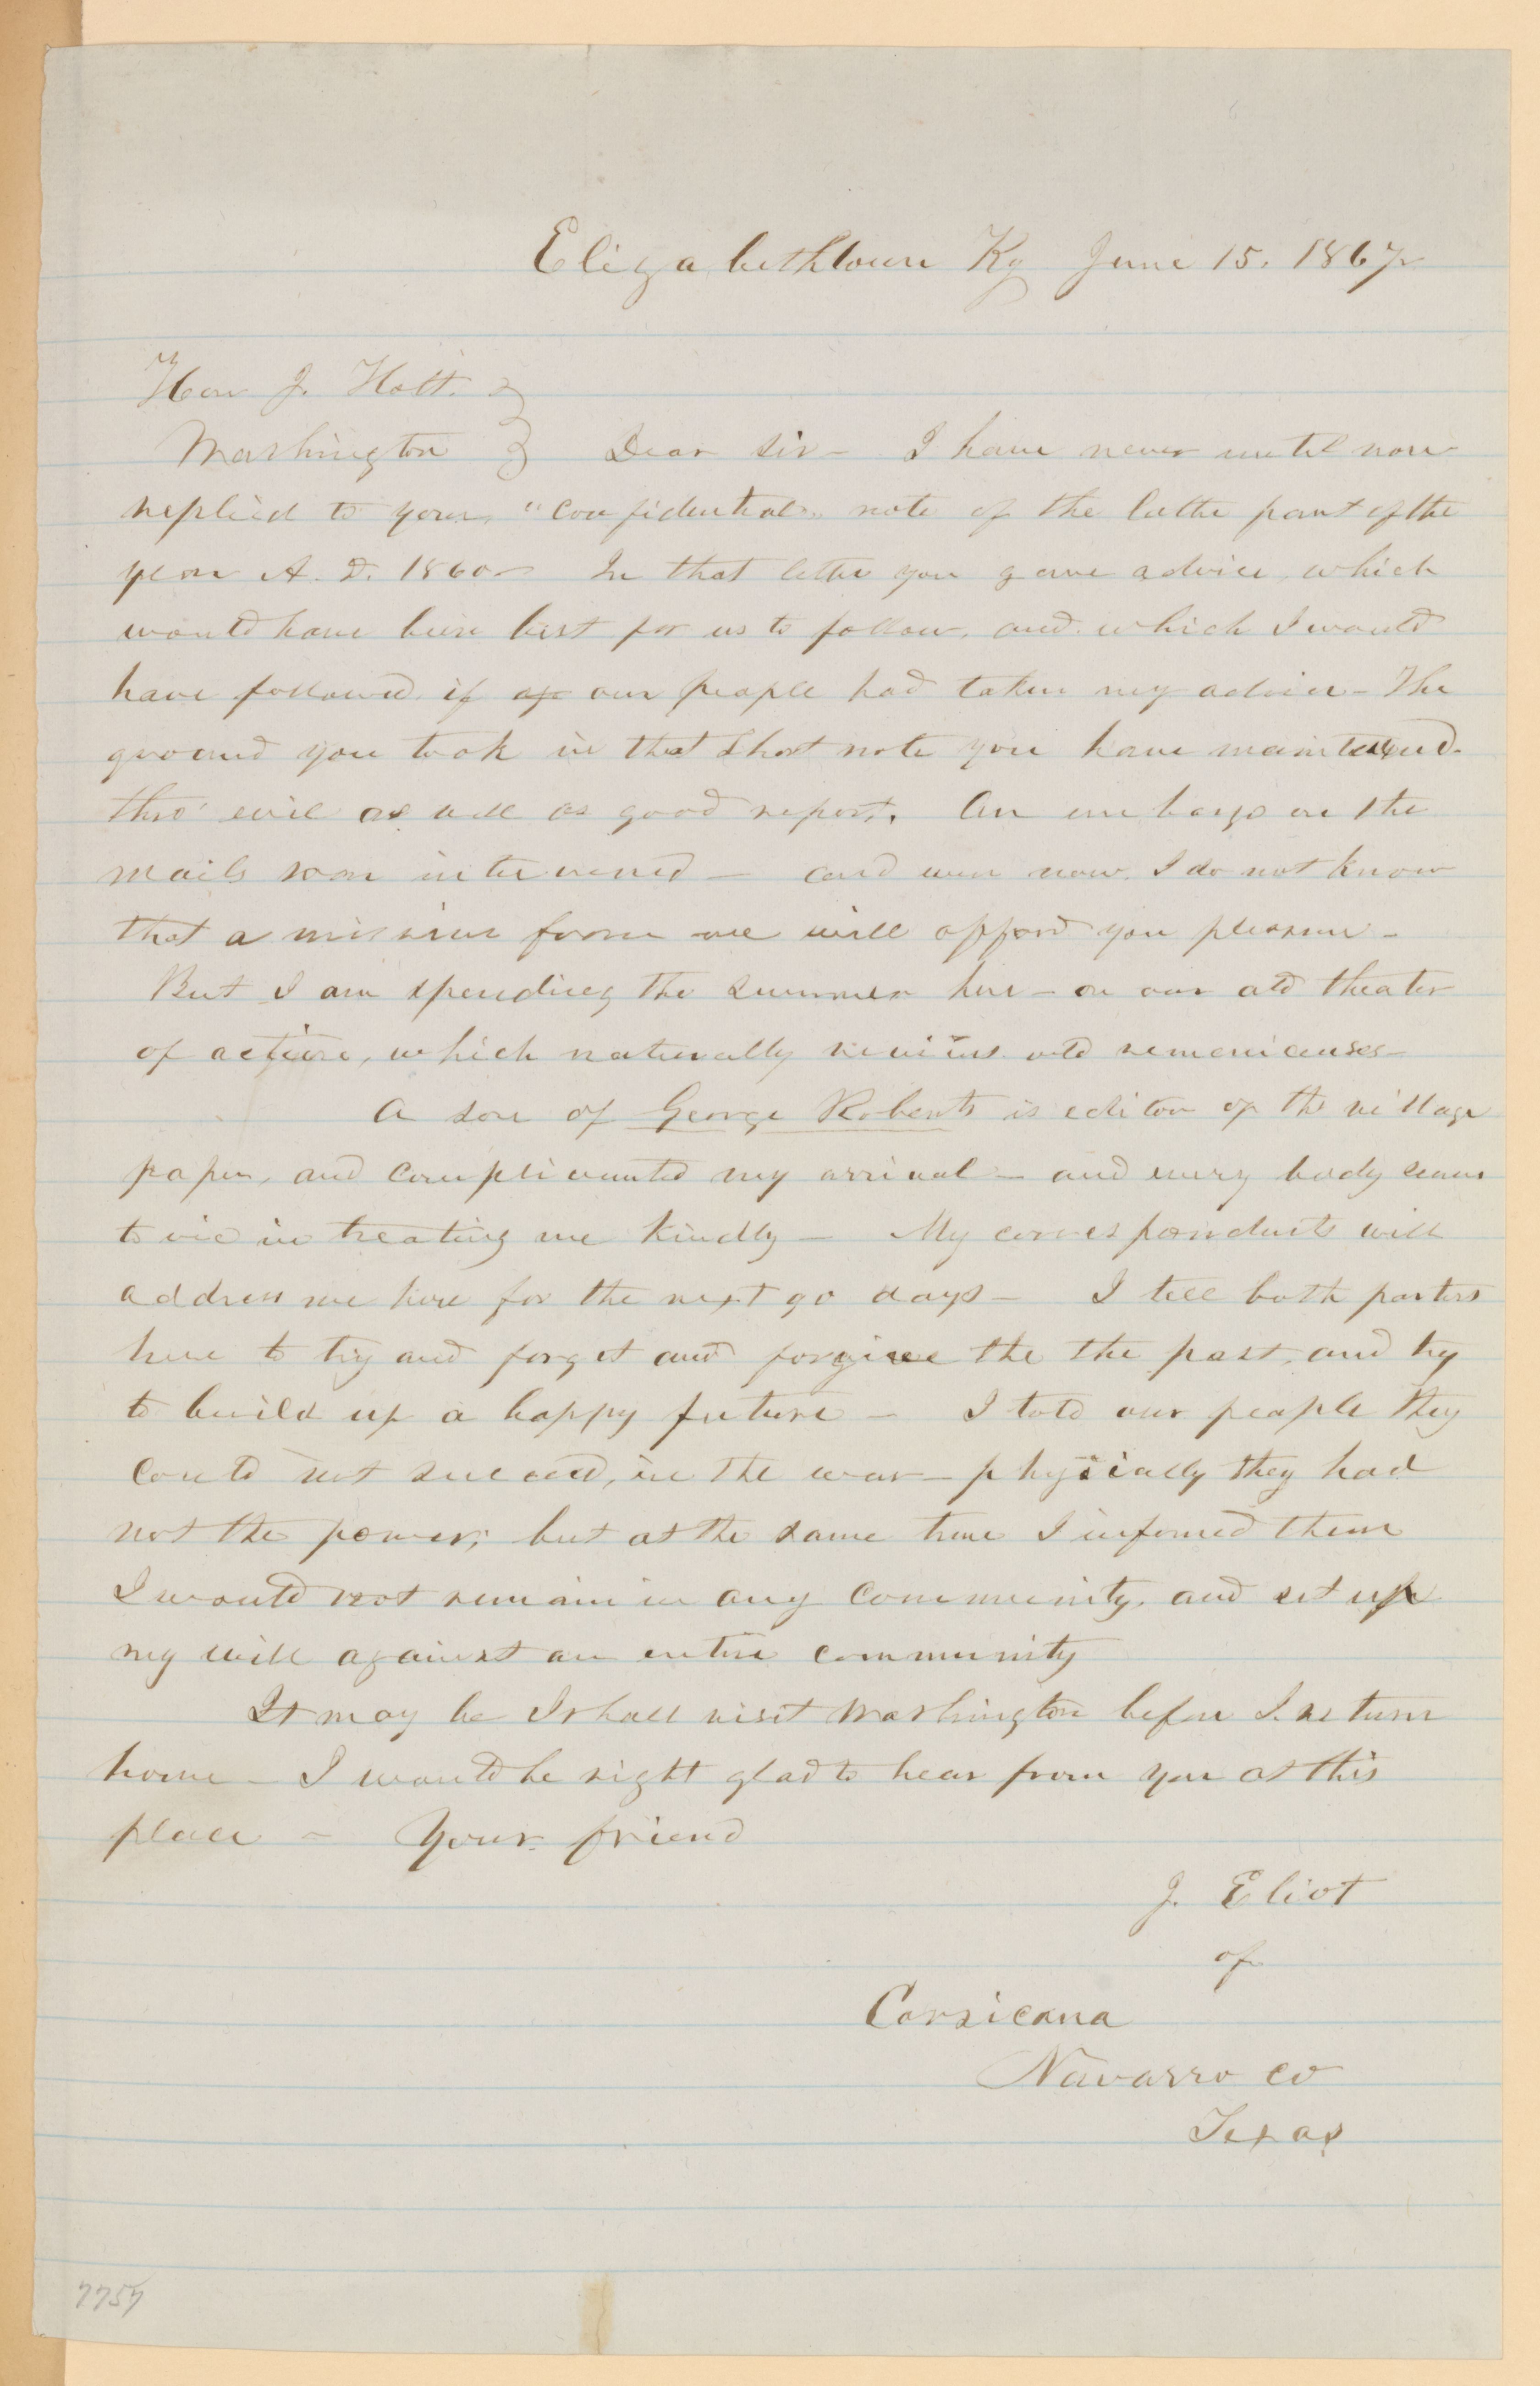 Elizabethtown Ky June 15. 1867
Hon J. Holt.
Washington Dear Sir - I have never until now
replied to your "confidential" note of the latter part of the
year A. D. 1860 - In that letter you gave advice which
would have been best for us to follow, and which I would
have followed if our people had taken my advice - The
ground you took in that short note you have maintained
thro' evil as well as good report. An embargo on the
mails soon intervened - and even now I do not know
that a missive from me will afford you pleasure -
But I am spending the summer here - on our old theater
of action, which naturally revives old remenicenses -
A son of George Roberts is editor of the village
paper, and complimented my arrival - and every body seems
to vie in treating me kindly - My correspondents will
address me here for the next 90 days - I tell both parties
here to try and forget and forgive the the past, and try
to build up a happy future - I told our people they
could not succeed, in the war - physically they had
not the power; but at the same time I informed them
I would not remain in any community, and set up
my will against an entire community
It may be I shall visit Washington before I return
home - I would be right glad to hear from you at this
place - Your friend
J. Eliot
of
Corsicana
Navarro co
Texas